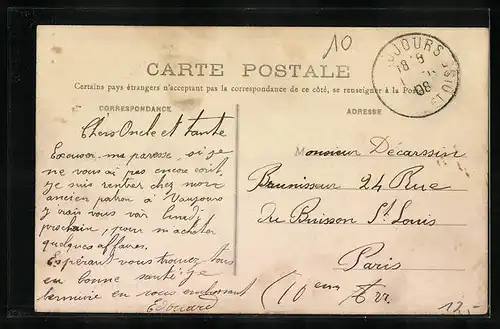 10
CARTE POSTALE
Certains pays étrangers n'acceptant pas la correspondance de ce côté, se renseigner à la Poste
CORRESPONDANCE
Chers Oncle et tante
Excuser, ma paresse, si je
ne vous ai pas encore écrit
je suis rentrer chez mon
ancien patron à Vaujours
j'irais vous voir lundi
prochain, pour m'acheter
quelques affaires.
Espérant vous trouver tous
en bonne santé je
termine en vous embrassant
Edouard
ADRESSE
Monsieur Décarssin
24 Rue
du Buisson St Louis
Paris
(10em Arr
12.-